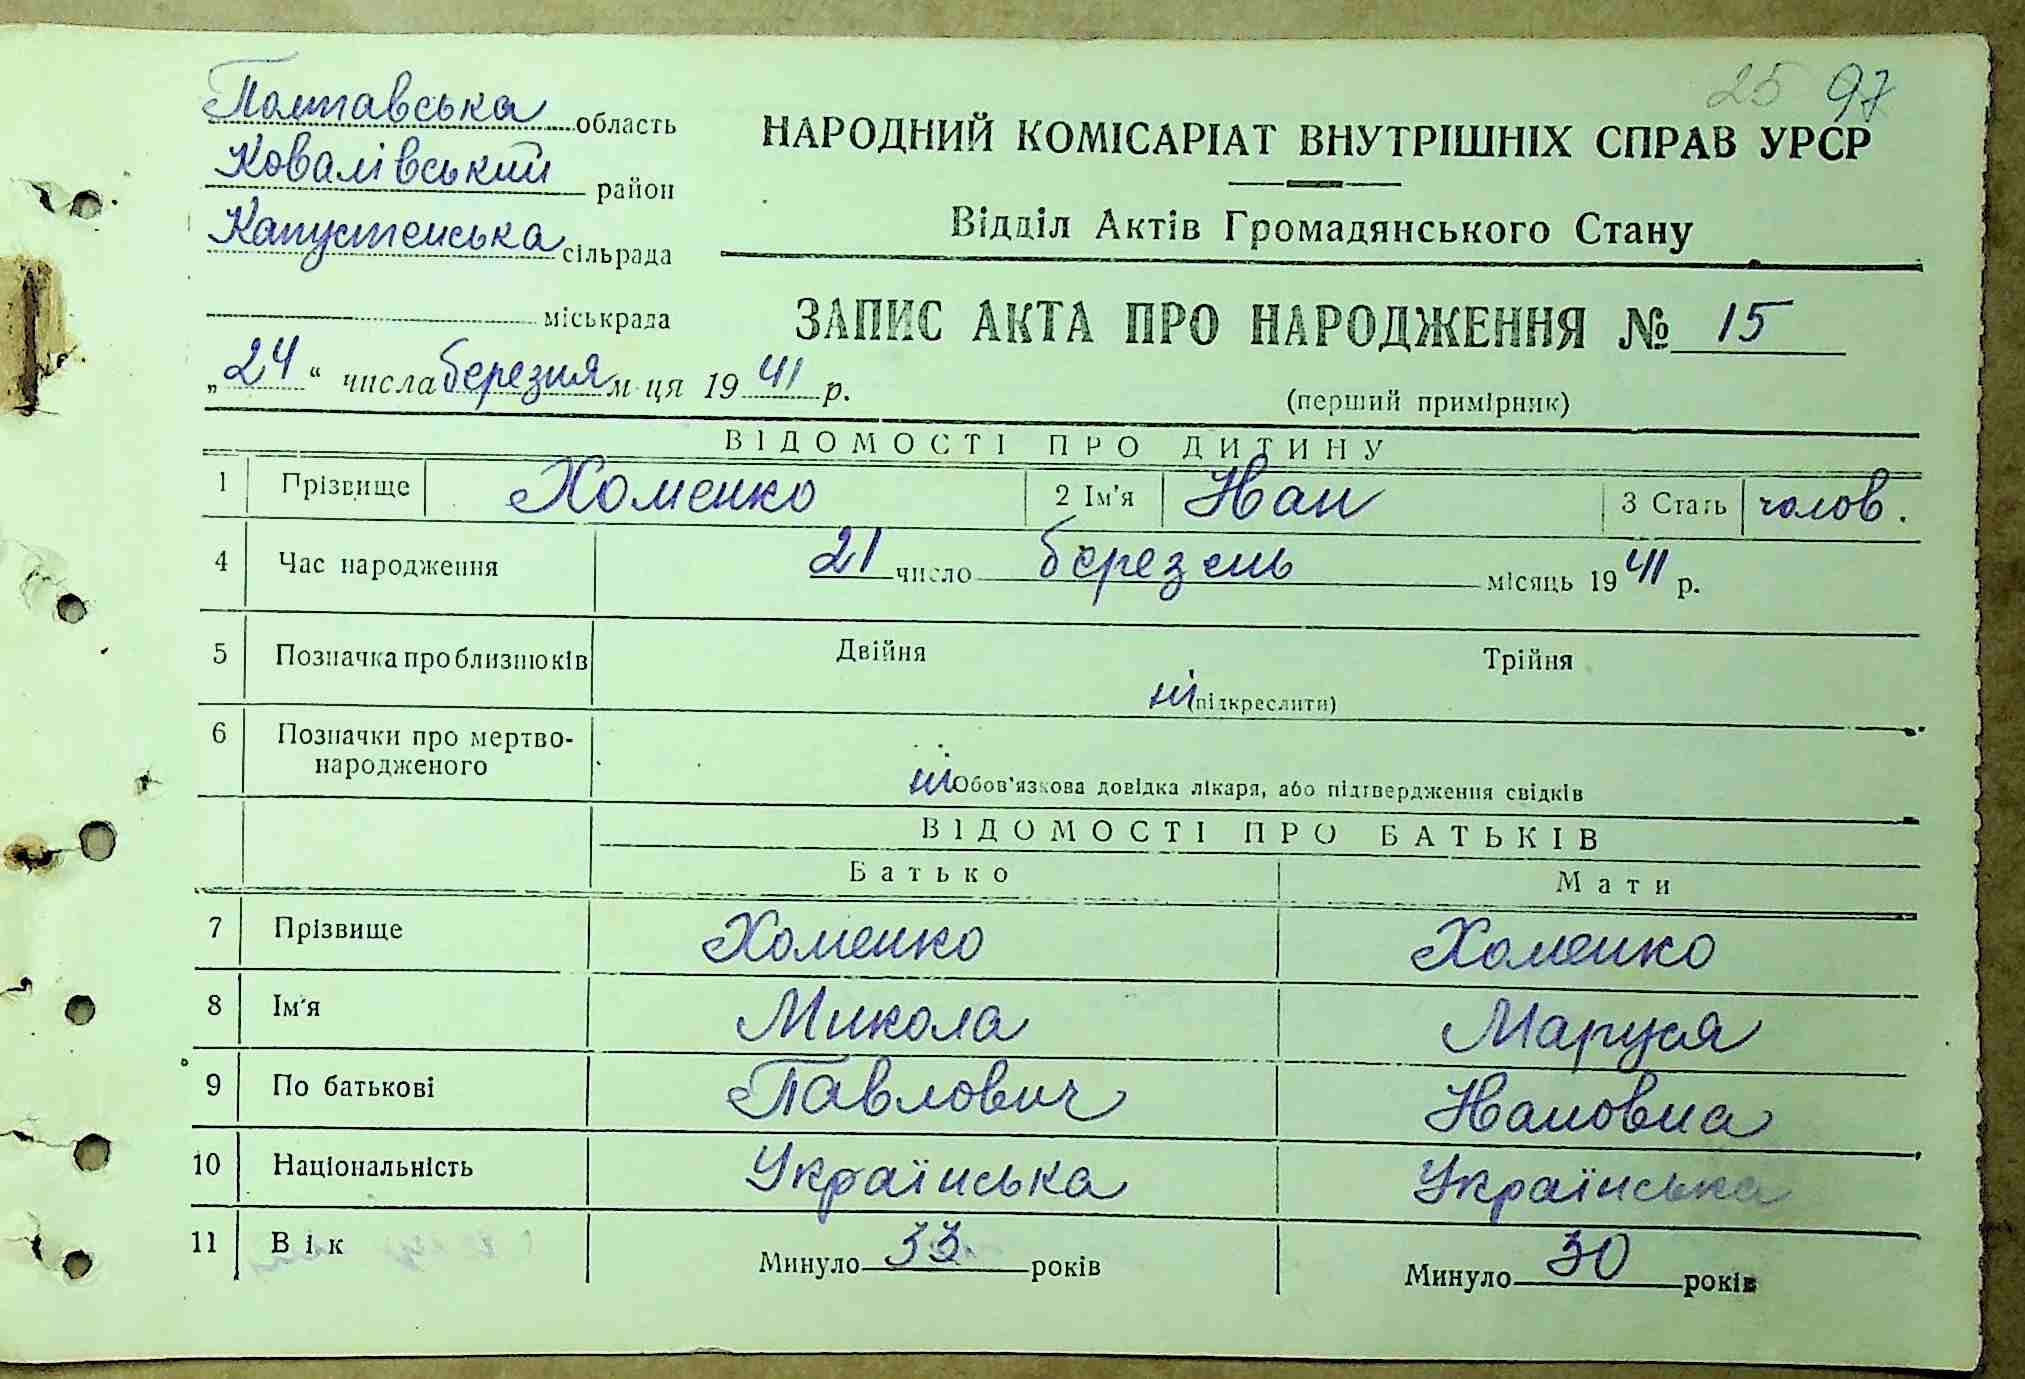 25 97
Полтавська область
Ковалівський район
Капустенська сільрада
міськрада
„24“ числа березня м-ця 1941 р.
НАРОДНИЙ КОМІСАРІАТ ВНУТРІШНІХ СПРАВ УРСР
Відділ Актів Громадянського Стану
ЗАПИС АКТА ПРО НАРОДЖЕННЯ № 15
(перший примірник)
ВІДОМОСТІ ПРО ДИТИНУ
1 Прізвище Хоменко 2 Ім'я Иван 3 Стать чолов.
4 Час народження 21 число березень місяць 1941 р.
5 Позначка про близнюків Двійня Трійня
ні (підкреслити)
6 Позначки про мертво-
народженого
ні Обов'язкова довідка лікаря, або підтвердження свідків
ВІДОМОСТІ ПРО БАТЬКІВ
Батько Мати
7 Прізвище Хоменко Хоменко
8 Ім'я Микола Маруся
9 По батькові Павлович Ивановна
10 Національність Українська Українська
11 Вік Минуло 33 років Минуло 30 років